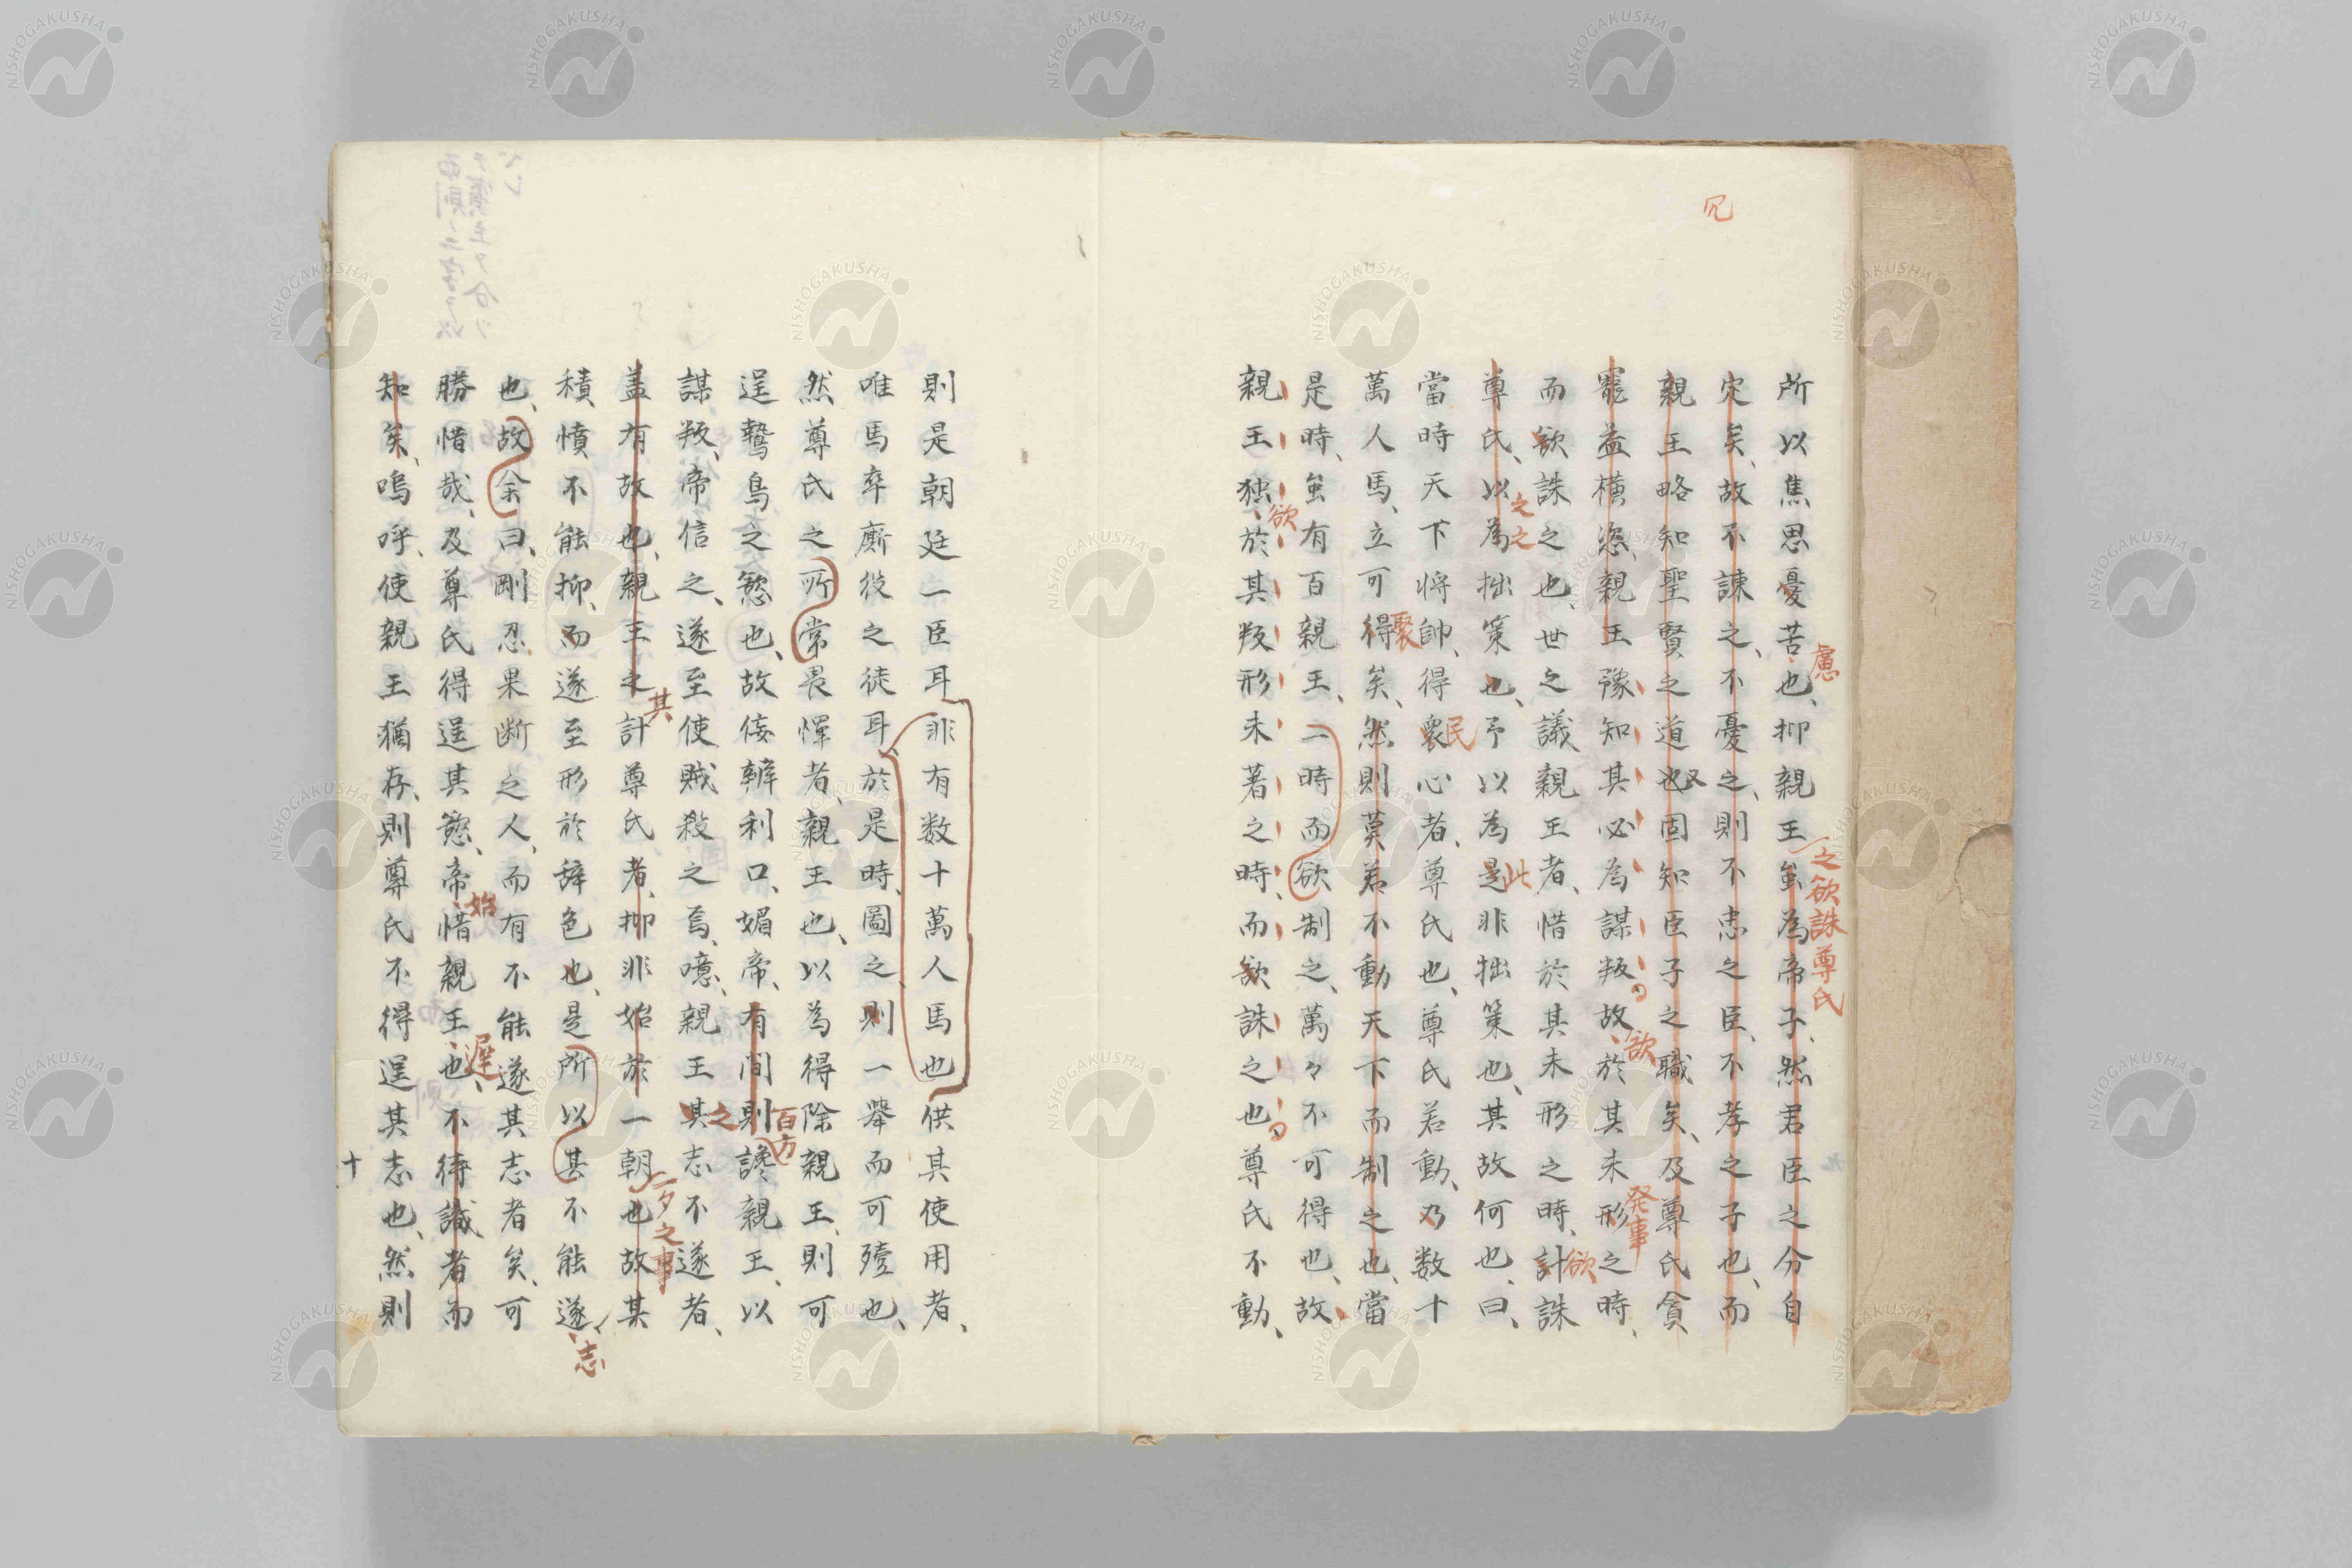 冗
所以焦思憂苦也、抑親王虽為帝子、然君臣之分自
慮
之欲誅尊氏
定矣、故不諌之、不憂之、則不忠之臣、不孝之子也、而
親王略知聖賢之道也又固知臣子之職矣、及尊氏貪
寵益横恣、親王豫知其必為謀叛、故於其未形之時、
欲
発事
而欲誅之也、世之議親王者、惜於其未形之時、計誅
欲
尊氏、以為拙策也、予以為是非拙策也、其故何也、曰、
之之
此
當時天下将帥、得衆心者、尊氏也、尊氏若動、乃数十
民
萬人馬、立可得矣、然則莫若不動天下而制之也、當
聚
是時、虽有百親王、一時而欲制之、萬々不可得也、故
親王独於其叛形未著之時、而欲誅之也、尊氏不動、
欲
則是朝廷一臣耳非有数十萬人馬也供其使用者、
唯馬卒廝役之徒耳、於是時、圖之、則一舉而可殪也、
然尊氏之所常畏憚者、親王也、以為得除親王、則可
逞鷙鳥之慾也、故佞辨利口、媚帝、有間則讒親王、以
百方
謀叛、帝信之、遂至使賊殺之焉、噫、親王其志不遂者、
之
盖有故也、親王之計尊氏者、抑非始於一朝也故其
其
一夕之事
積憤不能抑、而遂至形於辞色也、是所以甚不能遂
志
也、故余曰、剛忍果断之人、而有不能遂其志者矣、可
勝惜哉、及尊氏得逞其慾、帝惜親王也、不待識者而
始
遅
知矣、嗚呼、使親王猶存、則尊氏不得逞其志也、然則
十
NISHOGAKUSHA